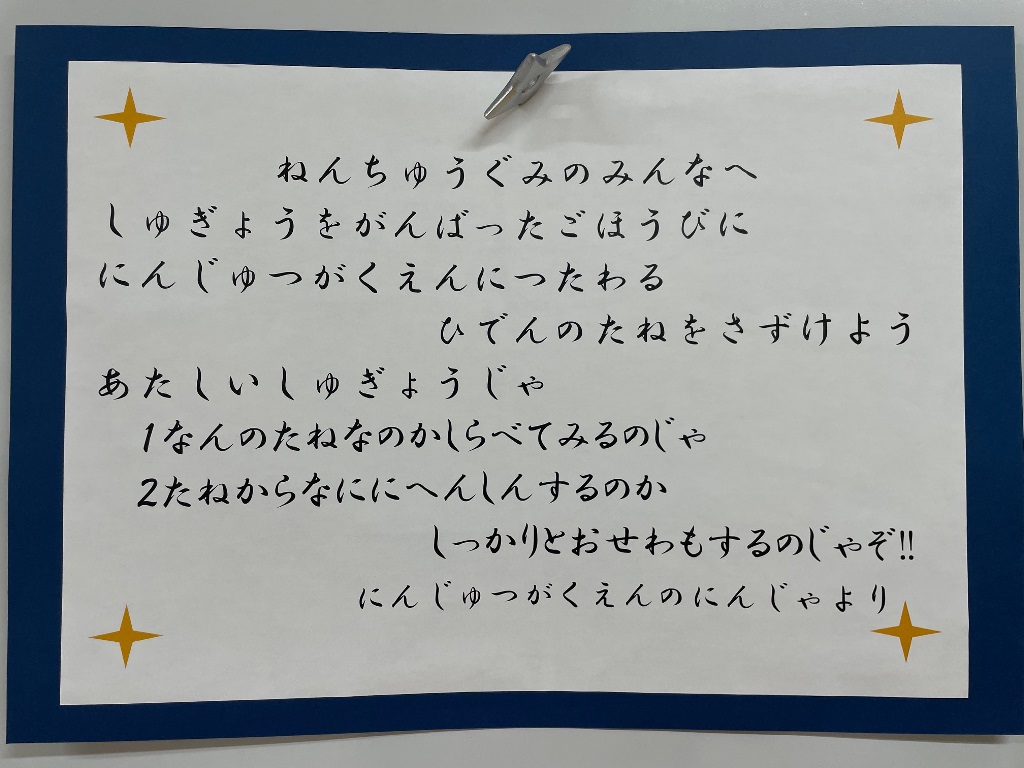 ねんちゅうぐみのみんなへ
しゅぎょうをがんばったごほうびに
にんじゅつがくえんにつたわる
ひでんのたねをさずけよう
あたしいしゅぎょうじゃ
1なんのたねなのかしらべてみるのじゃ
2たねからなににへんしんするのか
しっかりとおせわもするのじゃぞ!!
にんじゅつがくえんのにんじゃより